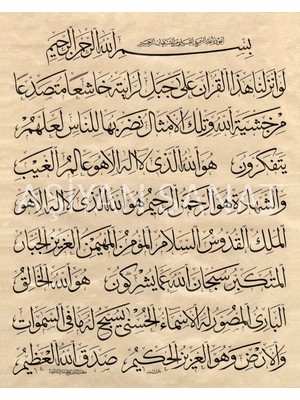 اعوذ بالله السميع العليم من الشيطان الرجيم
بسم الله الرحمن الرحيم
لو انزلنا هذا القران على جبل لرايته خاشعا متصدعا
من خشية الله وتلك الامثال نضربها للناس لعلهم
يتفكرون هو الله الذى لا اله الا هو عالم الغيب
ASİYAN SANAT
والشهادة هو الرحمن الرحيم هو الله الذى لا اله الا هو
الملك القدوس السلام المؤمن المهيمن العزيز الجبار
المتكبر سبحان الله عما يشركون هو الله الخالق
البارئ المصور له الاسماء الحسنى يسبح له ما فى السموات
والارض وهو العزيز الحكيم صدق الله العظيم